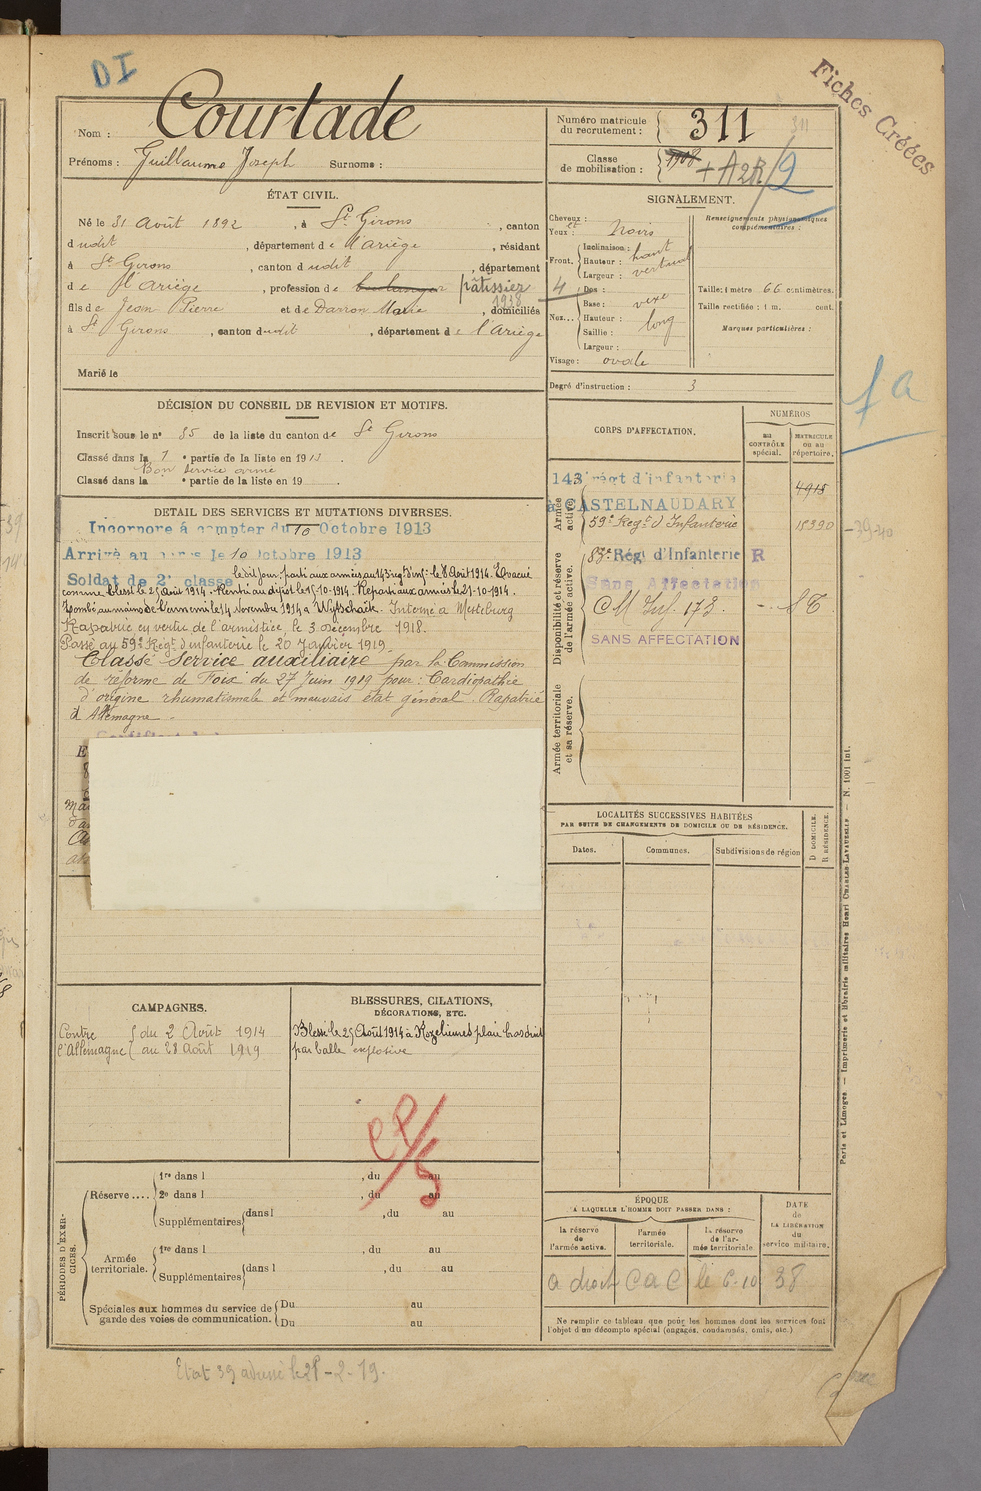 DI
Fiches Créées
Nom : Courtade
Prénoms : Guillaume Joseph Surnoms :
Numéro matricule du recrutement : 311
311
Classe de mobilisation : 1908 + A2R/2
ÉTAT CIVIL.
Né le 31 Août 1892, à St Girons, canton
dudit, département de l'Ariège, résidant
à St Girons, canton dudit, département
de l'Ariège, profession de boulanger pâtissier
1938
fils de Jean Pierre et de Darron Marie, domiciliés
à St Girons, canton dudit, département de l'Ariège
Marié le
SIGNALEMENT.
Cheveux :
et
Yeux : Noirs
Front. Inclinaison : haut
Hauteur : vertical
Largeur :
4
Nez... Dos :
Base : vexe
Hauteur : long
Saillie :
Largeur :
Visage : ovale
Renseignements physionomiques complémentaires :
Taille : 1 mètre 66 centimètres.
Taille rectifiée : 1 m. cent.
Marques particulières :
Degré d'instruction : 3
fa
DÉCISION DU CONSEIL DE REVISION ET MOTIFS.
Inscrit sous le n° 85 de la liste du canton de St Girons
Classé dans la 1 e partie de la liste en 1913.
Bon service armé
Classé dans la e partie de la liste en 19
DETAIL DES SERVICES ET MUTATIONS DIVERSES.
Incorporé à compter du 10 Octobre 1913
Arrivé au corps le 10 Octobre 1913
Soldat de 2e classe le dit jour. parti aux armées au 143 régt d'inf. le 8 Août 1914. Evacué
comme blessé le 25 Août 1914. Rentré au dépôt le 15-10-1914. Reparti aux armées le 21-10-1914.
Tombé au mains de l'ennemi le 14 Novembre 1914 à Wytschaëte. Interné à Merseburg
Rapatrié en vertu de l'armistice, le 3 Décembre 1918.
Passé au 59e Régt d'infanterie le 20 Janvier 1919.
Classé Service auxiliaire par la Commission
de réforme de Foix du 27 Juin 1919 pour : Cardiopathie
d'origine rhumatismale et mauvais état général. Rapatrié
d'Allemagne.
CORPS D'AFFECTATION.
NUMÉROS
au CONTRÔLE spécial.
MATRICULE ou au répertoire.
Armée active.
143e régt d'infanterie
à CASTELNAUDARY
4918
59e Régt d'Infanterie 15390
39-40
Disponibilité et réserve de l'armée active.
83e Régt d'Infanterie R
Sans Affectation
CM Inf. 173. -. ST
SANS AFFECTATION
Armée territoriale et sa réserve.
LOCALITÉS SUCCESSIVES HABITÉES
PAR SUITE DE CHANGEMENTS DE DOMICILE OU DE RÉSIDENCE.
Dates. Communes. Subdivisions de région
D DOMICILE.
R RÉSIDENCE.
CAMPAGNES.
Contre du 2 Août 1914
l'Allemagne au 28 Août 1919
BLESSURES, CITATIONS,
DÉCORATIONS, ETC.
Blessé le 25 Août 1914 à Rozelieures plaie bras droit
par balle explosive
CP/5
PÉRIODES D'EXERCICES.
Réserve.... 1re dans l , du au
2e dans l , du au
Supplémentaires dans l , du au
Armée territoriale. 1re dans l , du au
Supplémentaires dans l , du au
Spéciales aux hommes du service de garde des voies de communication. Du au
Du au
ÉPOQUE
A LAQUELLE L'HOMME DOIT PASSER DANS :
la réserve de l'armée active.
l'armée territoriale.
la réserve de l'armée territoriale.
DATE de LA LIBÉRATION du service militaire.
a droit C a C le 6-10 38
Ne remplir ce tableau que pour les hommes dont les services font
l'objet d'un décompte spécial (engagés, condamnés, omis, etc.)
Paris et Limoges. — Imprimerie et librairie militaires Henri CHARLES-LAVAUZELLE. — N. 1001 int.
Etat 39 adressé le 28-2-19.